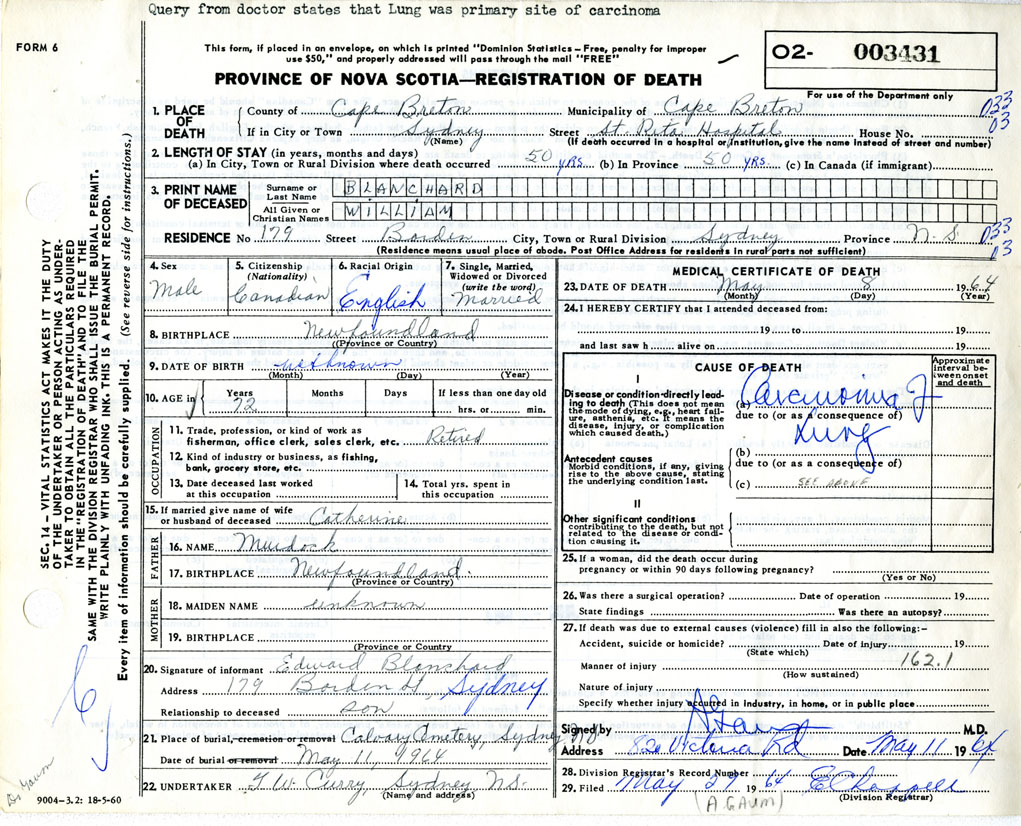 Query from doctor states that Lung was primary site of carcinoma
FORM 6
This form, if placed in an envelope, on which is printed "Dominion Statistics—Free, penalty for improper
use $50," and properly addressed will pass through the mail "FREE"
O2- 003431
For use of the Department only
PROVINCE OF NOVA SCOTIA—REGISTRATION OF DEATH
1. PLACE OF DEATH
County of Cape Breton Municipality of Cape Breton 033
If in City or Town Sydney Street St. Rita Hospital House No. 03
(Name) (If death occurred in a hospital or institution, give the name instead of street and number)
2. LENGTH OF STAY (in years, months and days)
(a) In City, Town or Rural Division where death occurred 50 yrs (b) In Province 50 yrs. (c) In Canada (if immigrant)
3. PRINT NAME OF DECEASED
Surname or Last Name BLANCHARD
All Given or Christian Names WILLIAM
RESIDENCE No 179 Street Borden City, Town or Rural Division Sydney Province N.S. 033
03
(Residence means usual place of abode. Post Office Address for residents in rural parts not sufficient)
4. Sex
Male
5. Citizenship (Nationality)
Canadian
6. Racial Origin
English
7. Single, Married, Widowed or Divorced (write the word)
Married
8. BIRTHPLACE Newfoundland
(Province or Country)
9. DATE OF BIRTH unknown
(Month) (Day) (Year)
10. AGE in Years Months Days If less than one day old
72 hrs. or min.
OCCUPATION
11. Trade, profession, or kind of work as
fisherman, office clerk, sales clerk, etc. Retired
12. Kind of industry or business, as fishing,
bank, grocery store, etc.
13. Date deceased last worked
at this occupation
14. Total yrs. spent in
this occupation
15. If married give name of wife
or husband of deceased Catherine
FATHER
16. NAME Murdock
17. BIRTHPLACE Newfoundland.
(Province or Country)
MOTHER
18. MAIDEN NAME unknown
19. BIRTHPLACE
(Province or Country)
20. Signature of informant Edward Blanchard
Address 179 Borden St, Sydney
Relationship to deceased son
21. Place of burial, cremation or removal Calvary Cemetery, Sydney N.S.
Date of burial or removal May 11, 1964
22. UNDERTAKER T W Curry, Sydney, N.S.
(Name and address)
MEDICAL CERTIFICATE OF DEATH
23. DATE OF DEATH May 8 1964
(Month) (Day) (Year)
24. I HEREBY CERTIFY that I attended deceased from:
19 to 19
and last saw h alive on 19
CAUSE OF DEATH
Approximate interval between onset and death
I
Disease or condition directly leading to death (This does not mean the mode of dying, e.g., heart failure, asthenia, etc. It means the disease, injury, or complication which caused death.)
(a) Carcinoma of
due to (or as a consequence of)
Lung
Antecedent causes
Morbid conditions, if any, giving rise to the above cause, stating the underlying condition last.
(b)
due to (or as a consequence of)
(c) SEE ABOVE
II
Other significant conditions
contributing to the death, but not related to the disease or condition causing it.
25. If a woman, did the death occur during
pregnancy or within 90 days following pregnancy?
(Yes or No)
26. Was there a surgical operation? Date of operation 19
State findings Was there an autopsy?
27. If death was due to external causes (violence) fill in also the following:-
Accident, suicide or homicide? Date of injury 19
(State which)
Manner of injury 162.1
(How sustained)
Nature of injury
Specify whether injury occurred in Industry, in home, or in public place
Signed by A Gaum M.D.
Address 826 Victoria Rd Date May 11 1964
28. Division Registrar's Record Number
29. Filed May 29 1964 E Chappell
(A. GAUM) (Division Registrar)
SEC. 14 – VITAL STATISTICS ACT MAKES IT THE DUTY
OF THE UNDERTAKER OR PERSON ACTING AS UNDER-
TAKER TO OBTAIN ALL THE PARTICULARS REQUIRED
IN THE "REGISTRATION OF DEATH" AND TO FILE THE
SAME WITH THE DIVISION REGISTRAR WHO SHALL ISSUE THE BURIAL PERMIT.
WRITE PLAINLY WITH UNFADING INK. THIS IS A PERMANENT RECORD.
Every item of information should be carefully supplied. (See reverse side for instructions.)
Dr Gaum
9004–3.2: 18-5-60